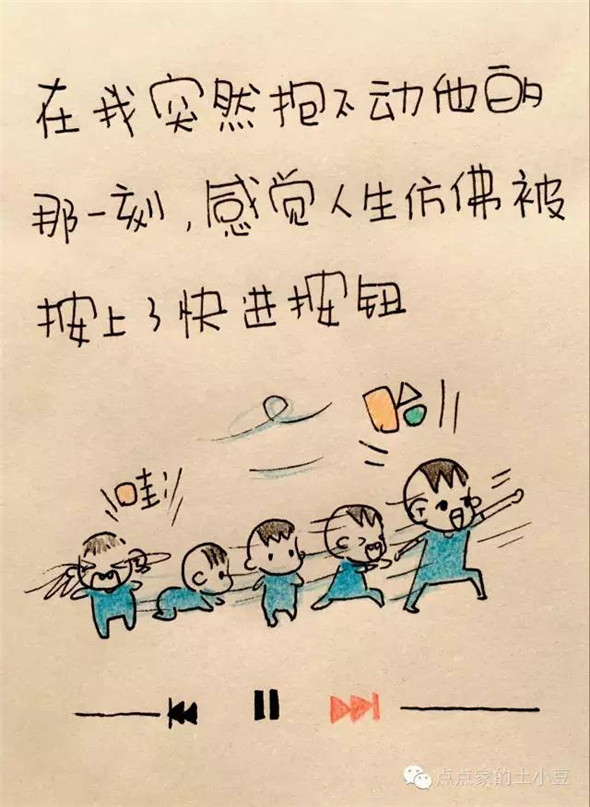 在我突然抱不动他的
那一刻,感觉人生仿佛被
按上了快进按钮
哈!!
哇!!
点点家的土小豆